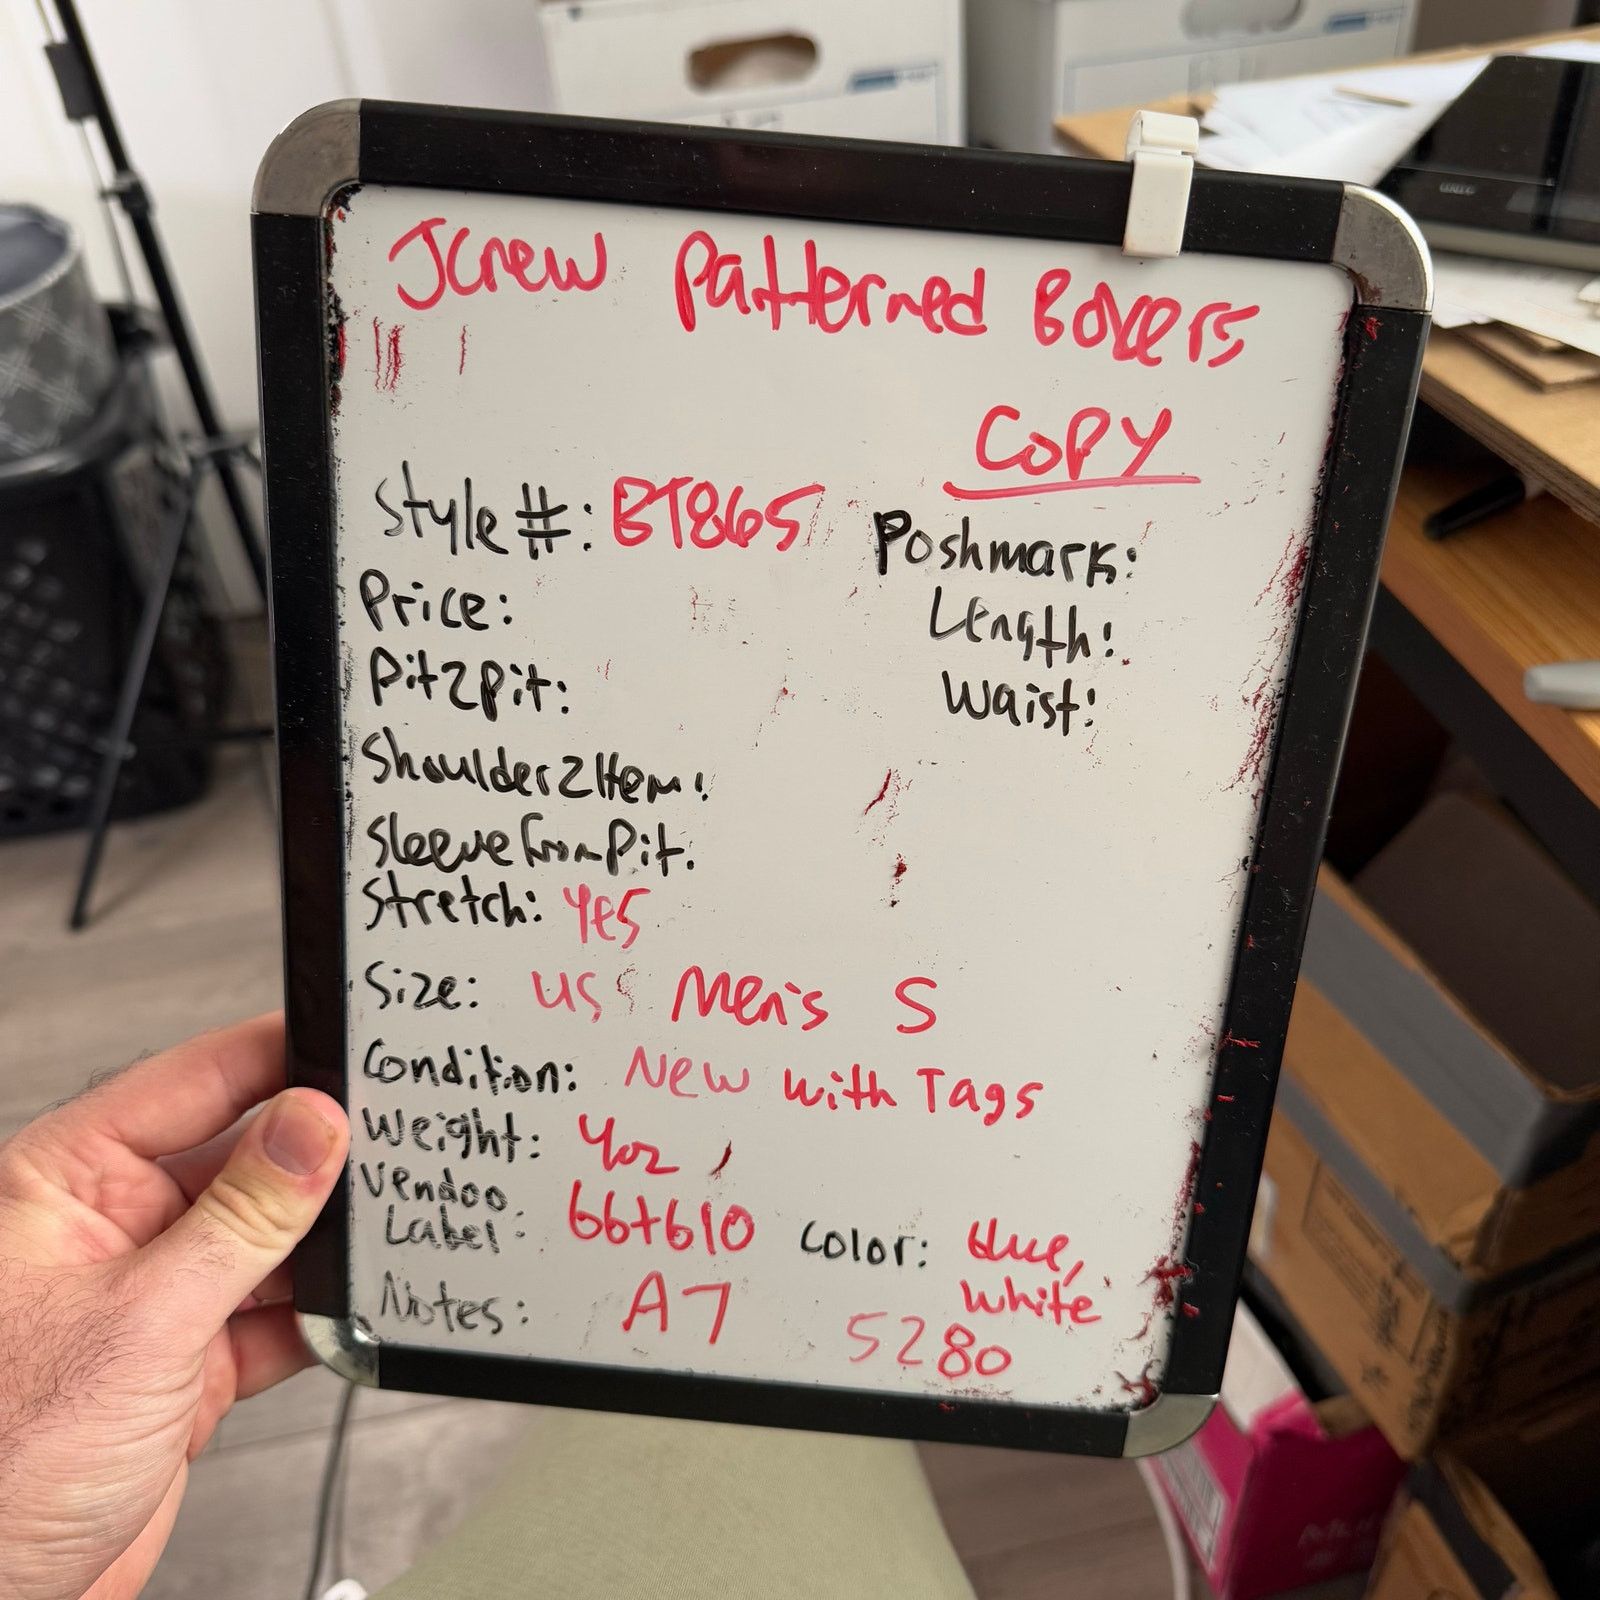 JCrew Patterned Boxers
COPY
Style #: BT865
Poshmark:
Price:
Length:
Pit2Pit:
Waist:
Shoulder2Hem:
SleeveFromPit:
Stretch: Yes
Size: US Men's S
Condition: New with Tags
Weight: 4oz
Vendoo
Label: 66+610
Color: blue,
white
Notes: A7 5280